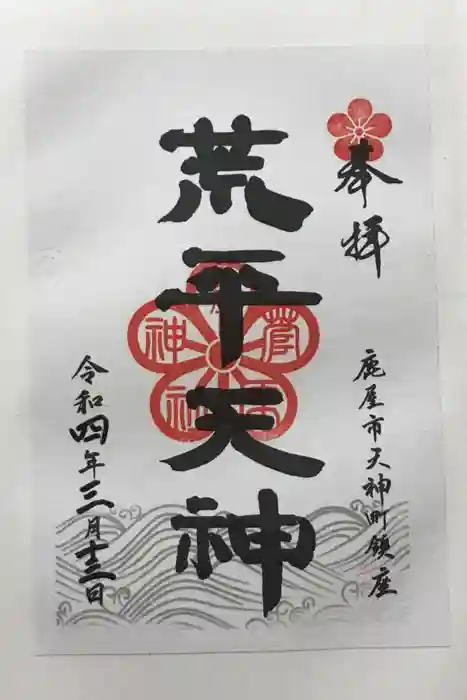 奉拝
鹿屋市天神町鎮座
荒平天神
菅原
神社
令和四年三月十三日